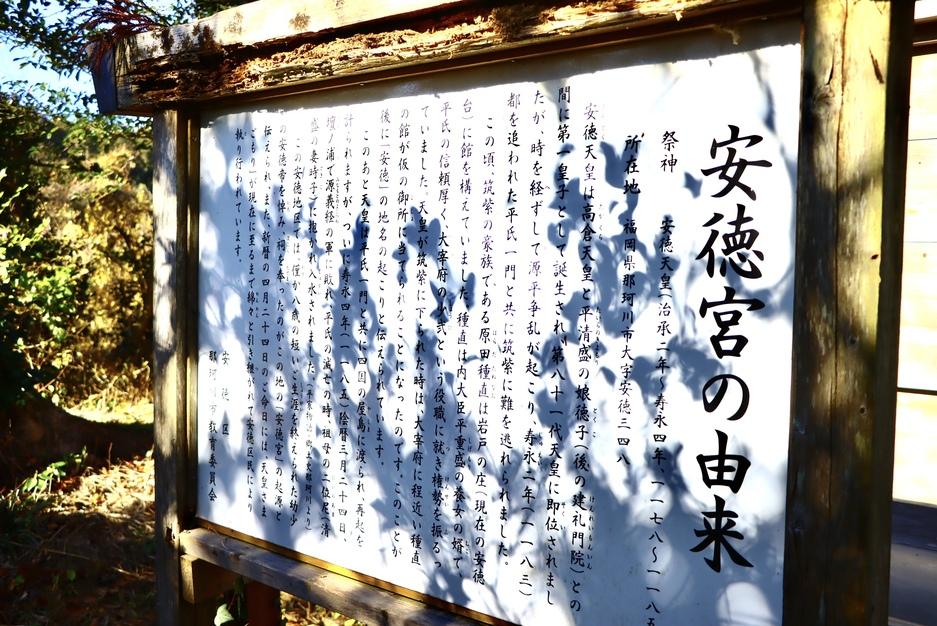 安徳宮の由来
祭神　安徳天皇(治承二年〜寿永四年、一一七八〜一一八五
所在地　福岡県那珂川市大字安徳三四八
安徳天皇は高倉天皇と平清盛の娘徳子(後の建礼門院)との
間に第一皇子として誕生され、第八十一代天皇に即位されまし
たが、時を経ずして源平争乱が起こり、寿永二年(一一八三)
都を追われた平氏一門と共に筑紫に難を逃れられました。
この頃、筑紫の豪族である原田種直は岩戸の庄(現在の安徳
台)に館を構えていました。種直は内大臣平重盛の養女の婿で
平氏の信頼厚く、大宰府の少弐という役職に就き権勢を振るっ
ていました。天皇が筑紫に下られた時は、大宰府に程近い種直
の館が仮の御所に当てられることになったのです。このことが
後に「安徳」の地名の起こりと伝えられています。
このあと天皇は平氏一門と共に四国の屋島に渡られ、再起を
計られますが、ついに寿永四年(一一八五)陰暦三月二十四日、
壇ノ浦で源義経の軍に敗れ、平氏の滅亡の時、祖母の二位尼(清
盛の妻時子)に抱かれ入水されました。
この安徳地区では、僅か八歳の短い生涯を終えられた幼少
の安徳帝を悼み、祠を奉ったのがこの地の「安徳宮」の起源と
伝えられ、また、新暦の四月二十四日のご命日には、「天皇さま
ごもり」が現在に至るまで綿々と引き継がれて安徳区民により
執り行われています。
安徳区
那珂川市教育委員会